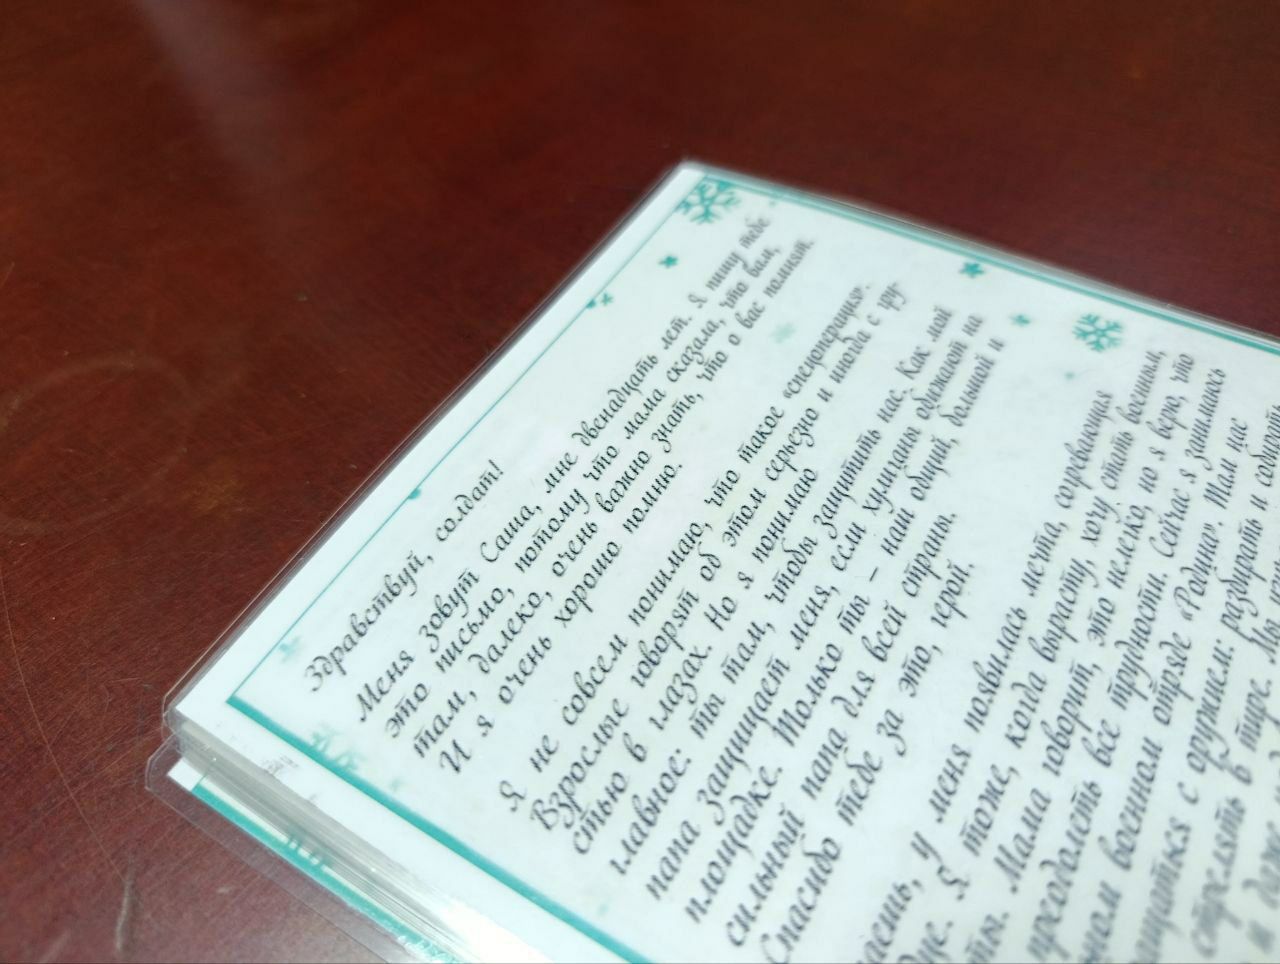 Здравствуй, солдат!
Меня зовут Саша, мне двенадцать лет. Я пишу тебе
это письмо, потому что мама сказала, что вам,
там, далеко, очень важно знать, что о вас помнят.
И я очень хорошо помню.
Я не совсем понимаю, что такое «спецоперация».
Взрослые говорят об этом серьезно и иногда с гру-
стью в глазах. Но я понимаю
главное: ты там, чтобы защитить нас. Как мой
папа защищает меня, если хулиганы обижают на
площадке. Только ты – наш общий, большой и
сильный папа для всей страны.
Спасибо тебе за это, герой.
у меня появилась мечта, согревающая
Я тоже, когда вырасту, хочу стать военным,
Мама говорит, это нелегко, но я верю, что
преодолеть все трудности. Сейчас я занимаюсь
военном отряде «Родина». Там нас
с оружием: разбирать и собирать
стрелять в тире. Мы
и даже